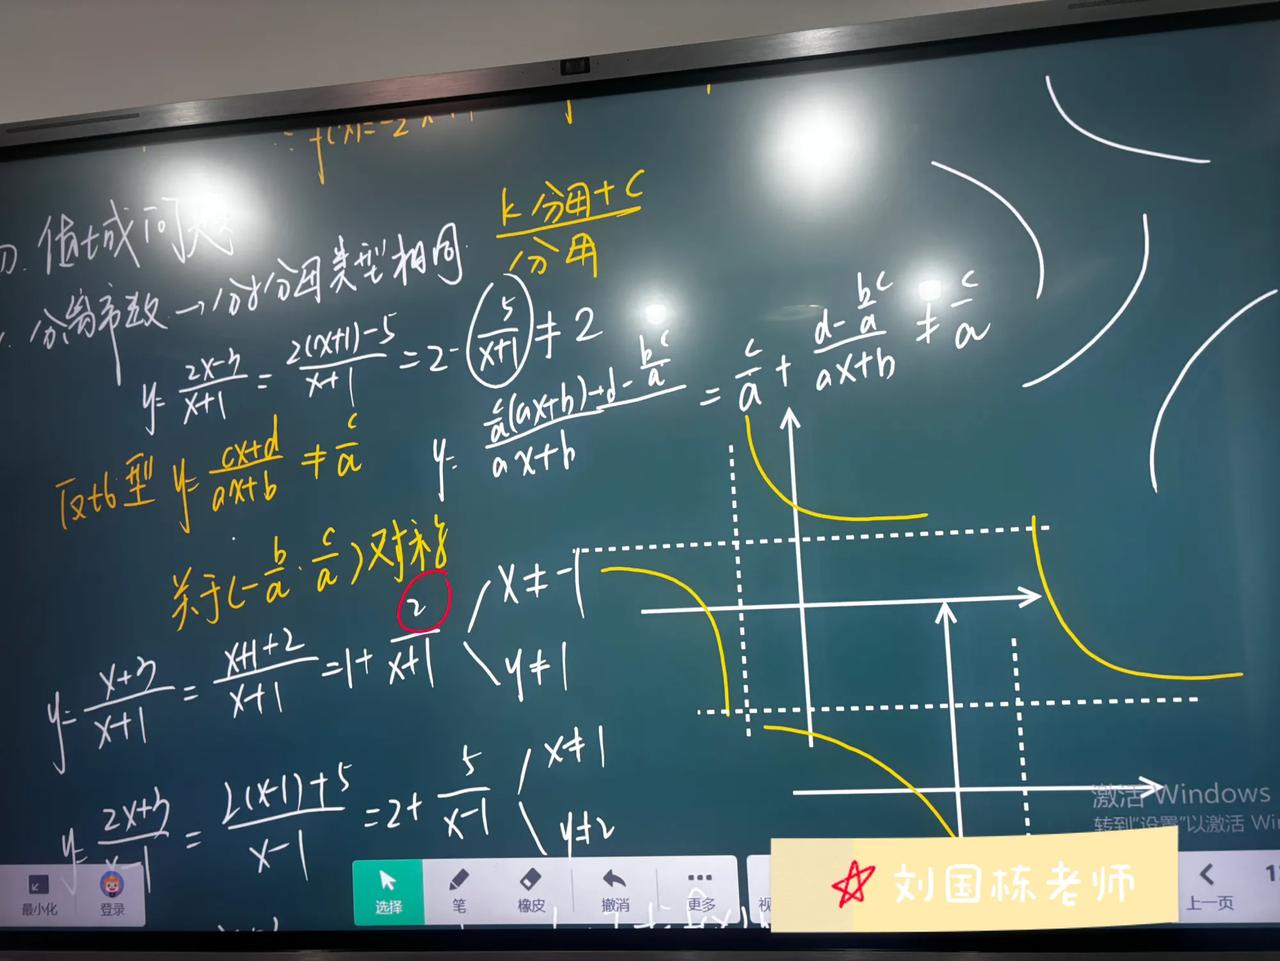 ∴ f(x)=-2x
四. 值域问题
k分母+C / 分母
1. 分离常数→分子分母类型相同
y=\frac{2x-3}{x+1}=\frac{2(x+1)-5}{x+1}=2-\frac{5}{x+1}≠2
y=\frac{\frac{c}{a}(ax+b)+d-\frac{bc}{a}}{ax+b}=\frac{c}{a}+\frac{d-\frac{bc}{a}}{ax+b}≠\frac{c}{a}
反比型 y=\frac{cx+d}{ax+b}≠\frac{c}{a}
关于(-\frac{b}{a}, \frac{c}{a})对称
y=\frac{x+3}{x+1}=\frac{x+1+2}{x+1}=1+\frac{2}{x+1}
x≠-1
y≠1
y=\frac{2x+3}{x-1}=\frac{2(x-1)+5}{x-1}=2+\frac{5}{x-1}
x≠1
y≠2
激活 Windows
转到"设置"以激活 Win
最小化
登录
选择
笔
橡皮
撤消
更多
刘国栋老师
上一页